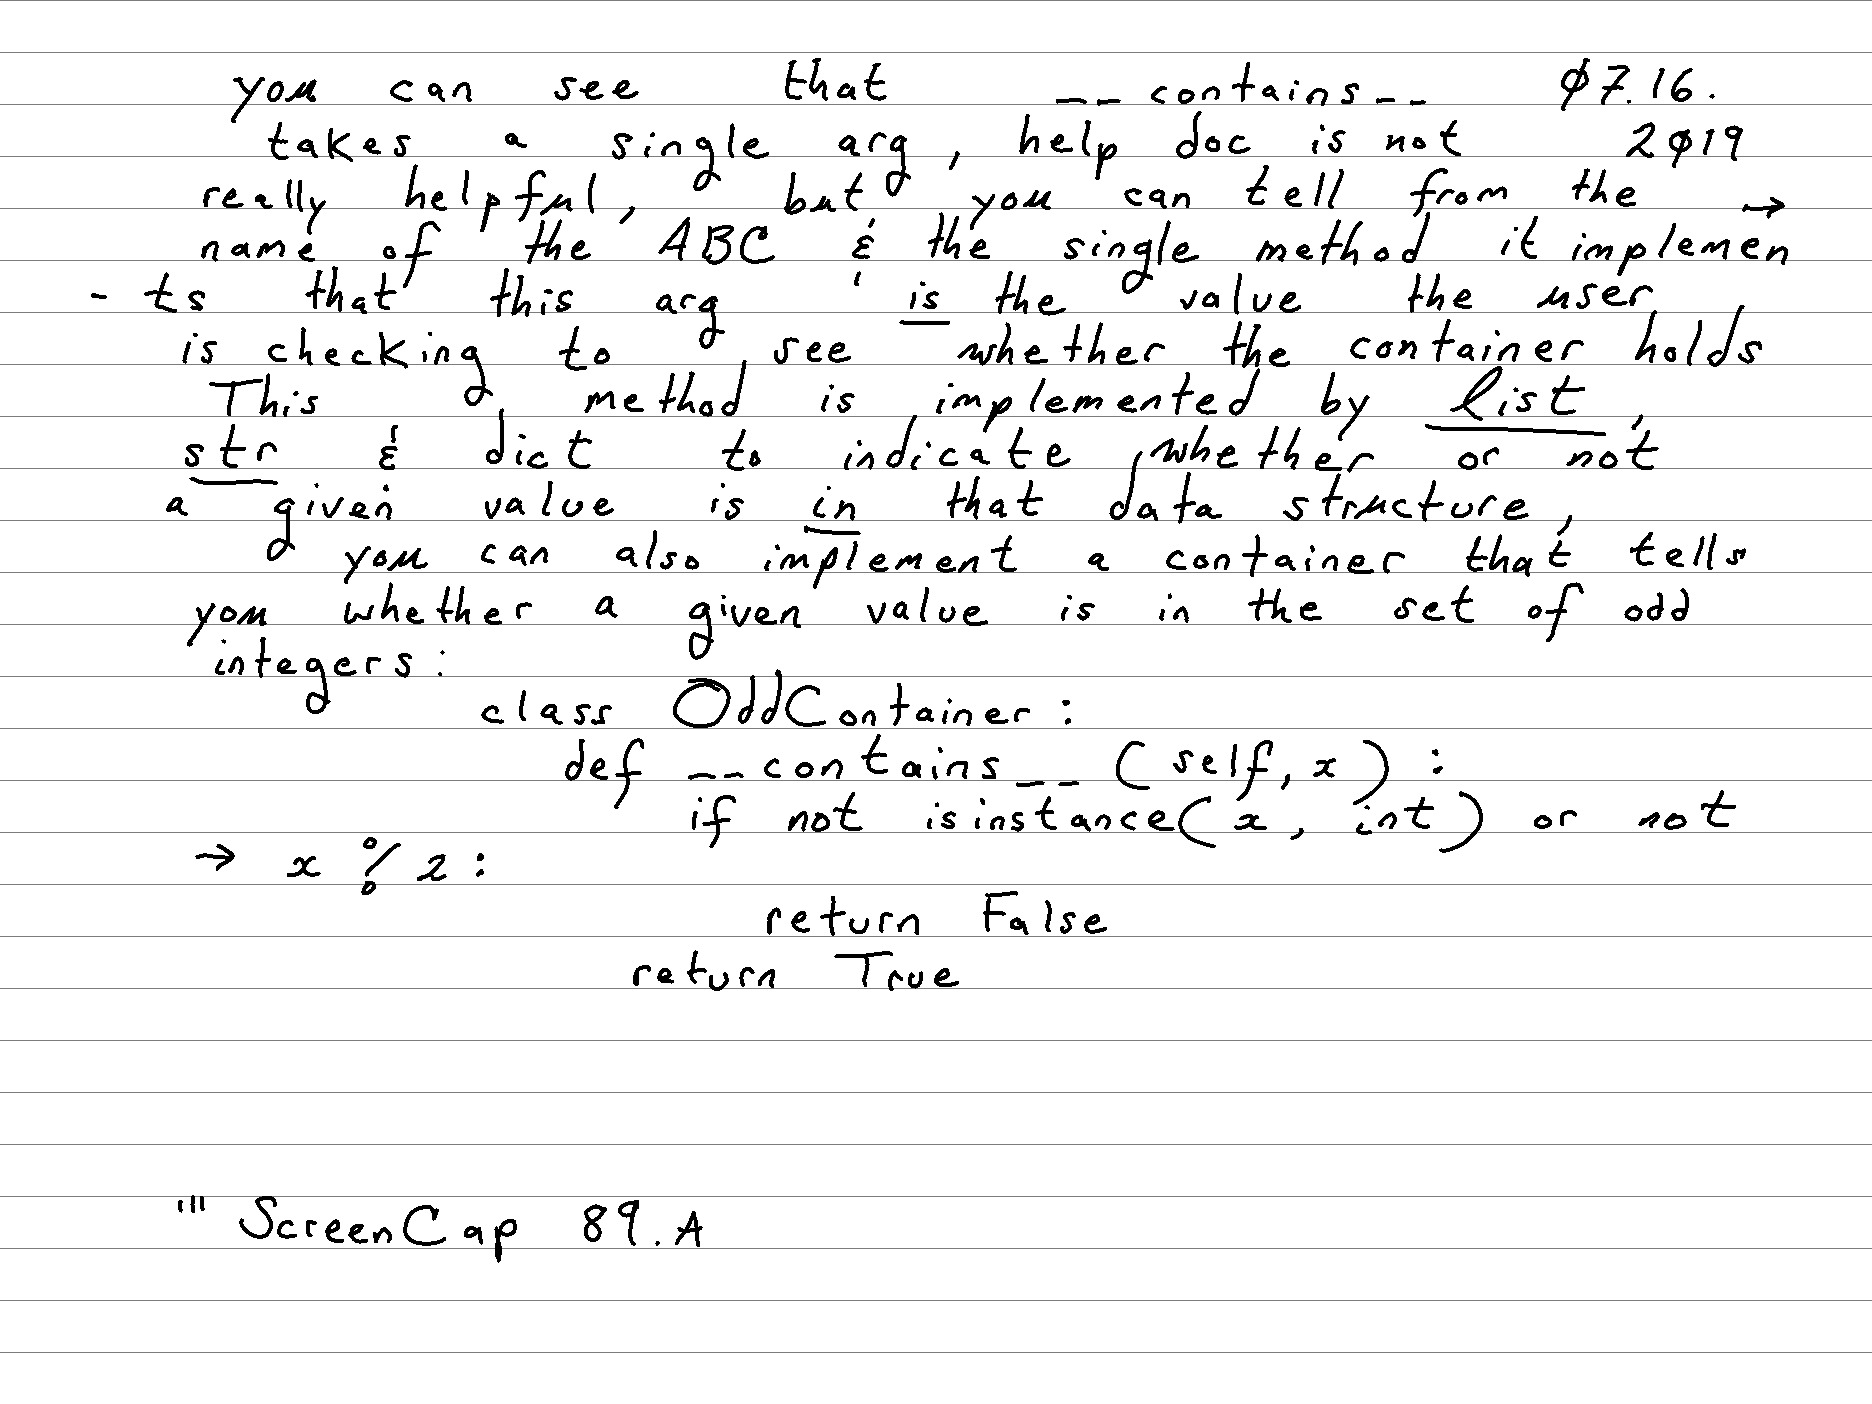 you can see that __contains__ ø7.16.
takes a single arg, help doc is not 2ø19
really helpful, but you can tell from the →
name of the ABC & the single method it implemen
- ts that this arg is the value the user
is checking to see whether the container holds
This method is implemented by list,
str & dict to indicate whether or not
a given value is in that data structure,
you can also implement a container that tells
you whether a given value is in the set of odd
integers:
class OddContainer:
def __contains__(self, x):
if not isinstance(x, int) or not
→ x % 2:
return False
return True
''' ScreenCap 89.A